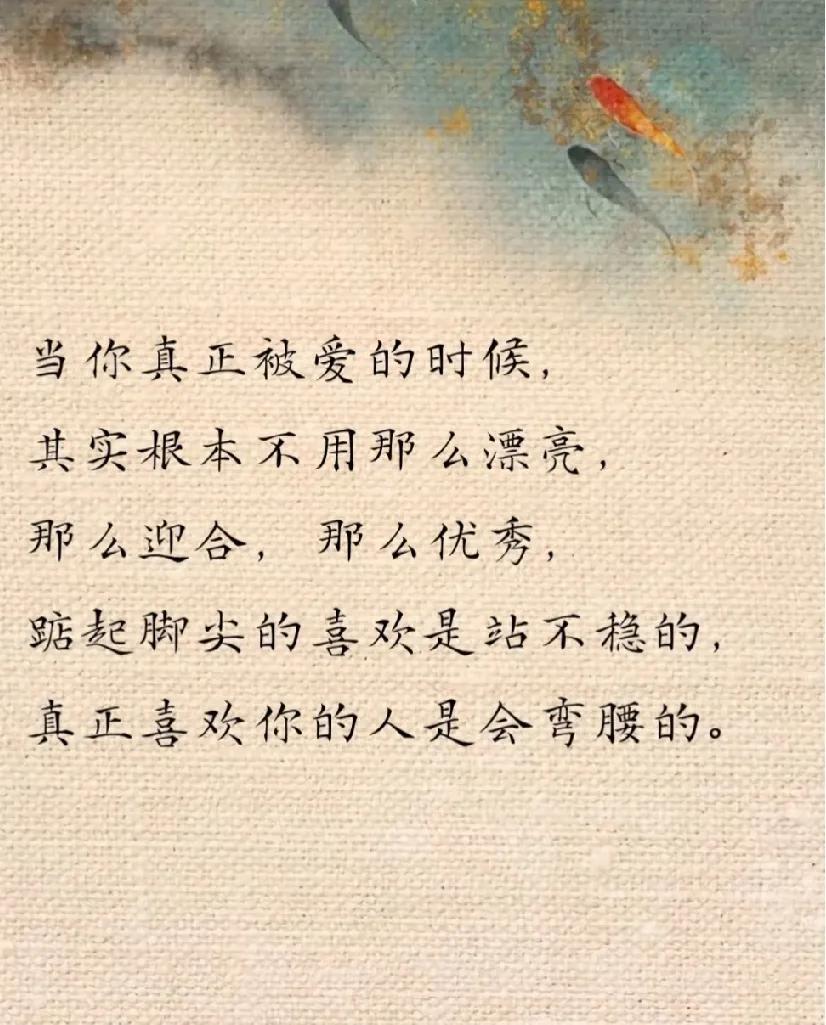 当你真正被爱的时候，
其实根本不用那么漂亮，
那么迎合，那么优秀，
踮起脚尖的喜欢是站不稳的，
真正喜欢你的人是会弯腰的。